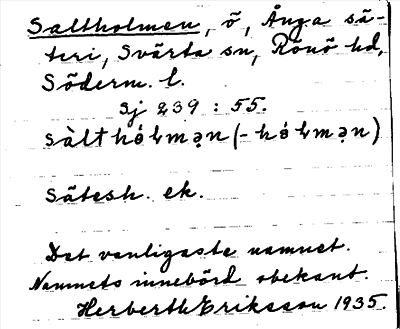 Saltholmen, ö, Ånga sä-
teri, Svärta sn, Rönö hd,
Söderm. l.
Sj 239 : 55.
sàlthólmən (-hólmən)
Sätesh. ek.
Det vanligaste namnet.
Namnets innebörd obekant.
Herberth Eriksson 1935.